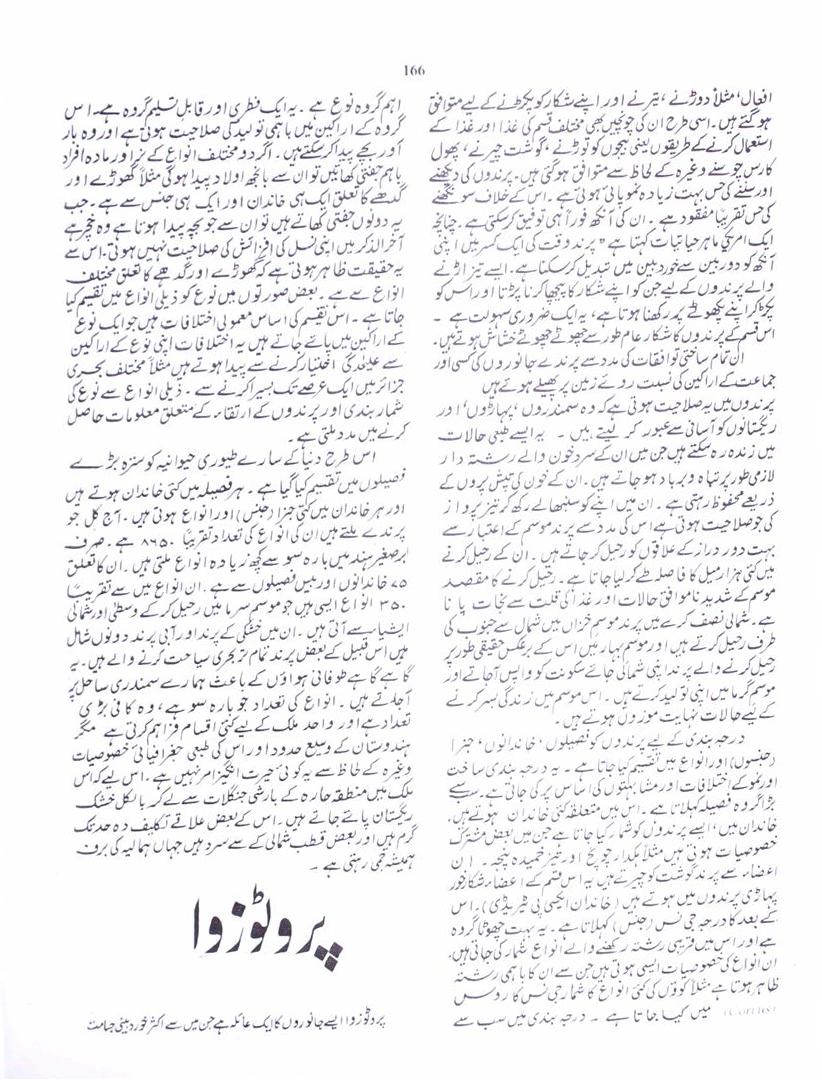 166
افعال، مثلاً دوڑنے، تیرنے اور اپنے شکار کو پکڑنے کے لیے متوافق
ہو گئے ہیں۔ اسی طرح ان کی چونچیں بھی مختلف قسم کی غذا اور غذا کے
استعمال کرنے کے طریقوں یعنی بیجوں کو توڑنے، گوشت چیرنے، پھول
کا رس چوسنے وغیرہ کے لحاظ سے متوافق ہو گئی ہیں۔ پرندوں کی دیکھنے
اور سننے کی حس بہت زیادہ نمو پائی ہوتی ہے۔ اس کے خلاف سونگھنے
کی حس تقریباً مفقود ہے۔ ان کی آنکھ فوراً ہی توفیق کر سکتی ہے۔ چنانچہ
ایک امریکی ماہر حیاتیات کہتا ہے "پرند وقت کی ایک کسر میں اپنی
آنکھ کو دوربین سے خوردبین میں تبدیل کر سکتا ہے۔ ایسے تیز اڑنے
والے پرندوں کے لیے جن کو اپنے شکار کا پیچھا کرنا پڑتا اور اس کو
پکڑ کر اپنے پکھوٹے پر رکھنا ہوتا ہے، یہ ایک ضروری سہولت ہے۔
اس قسم کے پرندوں کا شکار عام طور سے چھوٹے چھوٹے خشاش ہوتے ہیں۔
ان تمام ساختی توافقات کی مدد سے پرندے جانوروں کی کسی اور
جماعت کے اراکین کی نسبت روئے زمین پر پھیلے ہوتے ہیں
پرندوں میں یہ صلاحیت ہوتی ہے کہ وہ سمندروں، پہاڑوں، اور
ریگستانوں کو آسانی سے عبور کر لیتے ہیں۔ یہ ایسے طبعی حالات
میں زندہ رہ سکتے ہیں جن میں ان کے سرد خون والے رشتہ دار
لازمی طور پر تباہ و برباد ہو جاتے ہیں۔ ان کے خون کی تپش پروں کے
ذریعے محفوظ رہتی ہے۔ ان میں اپنے کو سنبھالے رکھ کر تیز پرواز
کی جو صلاحیت ہوتی ہے اس کی مدد سے پرند موسم کے اعتبار سے
بہت دور دراز کے علاقوں کو رحیل کر جاتے ہیں۔ ان کے رحیل کرنے
میں کئی ہزار میل کا فاصلہ طے کر لیا جاتا ہے۔ رحیل کرنے کا مقصد
موسم کے شدید ناموافق حالات اور غذا کی قلت سے نجات پانا
ہے۔ شمالی نصف کرے میں پرند موسم خزاں میں شمال سے جنوب کی
طرف رحیل کرتے ہیں اور موسم بہار میں اس کے برعکس حقیقی طور پر
رحیل کرنے والے پرند اپنی شمالی جائے سکونت کو واپس آ جاتے اور
موسم گرما میں اپنی تولید کرتے ہیں۔ اس موسم میں زندگی بسر کرنے
کے لیے حالات نہایت موزوں ہوتے ہیں۔
درجہ بندی کے لیے پرندوں کو فصیلوں، خاندانوں، جنرا
(جنسوں) اور انواع میں تقسیم کیا جاتا ہے۔ یہ درجہ بندی ساخت
اور نمو کے اختلافات اور مشابہتوں کی اساس پر کی جاتی ہے۔ سب سے
بڑا گروہ فصیلہ کہلاتا ہے۔ اس میں متعلقہ کئی خاندان ہوتے ہیں،
خاندان میں، ایسے پرندوں کو شمار کیا جاتا ہے جن میں بعض مشترک
خصوصیات ہوتی ہیں مثلاً ہکدار چونچ اور تیز خمیدہ پنجہ۔ ان
اعضاء سے پرند گوشت کو چیرتے ہیں یہ اس قسم کے اعضاء شکار خور
پہاڑی پرندوں میں ہوتے ہیں (خاندان ایکسی پی ٹریڈی)۔ اس
کے بعد کا درجہ جی نس (جنس) کہلاتا ہے۔ یہ بہت چھوٹا گروہ
ہے اور اس میں قریبی رشتہ رکھنے والے انواع شمار کی جاتی ہیں،
ان انواع کی خصوصیات ایسی ہوتی ہیں جن سے ان کا باہمی رشتہ
ظاہر ہوتا ہے مثلاً کوؤں کی کئی انواع کا شمار جی نس کاروس
(Corvus) میں کیا جاتا ہے۔ درجہ بندی میں سب سے
اہم گروہ نوع ہے۔ یہ ایک فطری اور قابل تسلیم گروہ ہے۔ اس
گروہ کے اراکین میں باہمی تولید کی صلاحیت ہوتی ہے اور وہ بار
آور بچے پیدا کر سکتے ہیں۔ اگر دو مختلف انواع کے نر اور مادہ افراد
باہم جفتی کھائیں تو ان سے بانجھ اولاد پیدا ہوگی مثلاً گھوڑے اور
گدھے کا تعلق ایک ہی خاندان اور ایک ہی جنس سے ہے۔ جب
یہ دونوں جفتی کھاتے ہیں تو ان سے جو بچہ پیدا ہوتا ہے وہ خچر ہے
آخر الذکر میں اپنی نسل کی افزائش کی صلاحیت نہیں ہوتی۔ اس سے
یہ حقیقت ظاہر ہوتی ہے کہ گھوڑے اور گدھے کا تعلق مختلف
انواع سے ہے۔ بعض صورتوں میں نوع کو ذیلی انواع میں تقسیم کیا
جاتا ہے۔ اس تقسیم کی اساس معمولی اختلافات ہیں جو ایک نوع
کے اراکین میں پائے جاتے ہیں یہ اختلافات اپنی نوع کے اراکین
سے علیحدگی اختیار کرنے سے پیدا ہوتے ہیں مثلاً مختلف بحری
جزائر میں ایک عرصے تک بسیرا کرنے سے۔ ذیلی انواع سے نوع کی
شمار بندی اور پرندوں کے ارتقاء کے متعلق معلومات حاصل
کرنے میں مدد ملتی ہے۔
اس طرح دنیا کے سارے طیوری حیوانیہ کو سترہ بڑے
فصیلوں میں تقسیم کیا گیا ہے۔ ہر فصیلہ میں کئی خاندان ہوتے ہیں
اور ہر خاندان میں کئی جنرا (جنس) اور انواع ہوتی ہیں۔ آج کل جو
پرندے ملتے ہیں ان کی انواع کی تعداد تقریباً ۸۶۵۰ ہے۔ صرف
برصغیر ہند میں بارہ سو سے کچھ زیادہ انواع ملتی ہیں۔ ان کا تعلق
۷۵ خاندانوں اور بیس فصیلوں سے ہے۔ ان انواع میں سے تقریباً
۳۵۰ انواع ایسی ہیں جو موسم سرما میں رحیل کر کے وسطی اور شمالی
ایشیا سے آتی ہیں۔ ان میں خشکی کے پرند اور آبی پرند دونوں شامل
ہیں اس قبیل کے بعض پرند تمام تر بحری سیاحت کرنے والے ہیں۔ یہ
گاہے گاہے طوفانی ہواؤں کے باعث ہمارے سمندری ساحل پر
آ جاتے ہیں۔ انواع کی تعداد جو بارہ سو ہے، وہ کافی بڑی
تعداد ہے اور واحد ملک کے لیے کئی اقسام فراہم کرتی ہے مگر
ہندوستان کے وسیع حدود اور اس کی طبعی جغرافیائی خصوصیات
وغیرہ کے لحاظ سے یہ کوئی حیرت انگیز امر نہیں ہے۔ اس لیے کہ اس
ملک میں منطقہ حارہ کے بارشی جنگلات سے لے کر بالکل خشک
ریگستان پائے جاتے ہیں۔ اس کے بعض علاقے تکلیف دہ حد تک
گرم ہیں اور بعض قطب شمالی کے سے سرد ہیں جہاں ہمالیہ کی برف
ہمیشہ جمی رہتی ہے۔
پروٹوزوا
پروٹوزوا ایسے جانوروں کا ایک عائلہ ہے جن میں سے اکثر خوردبینی جسامت